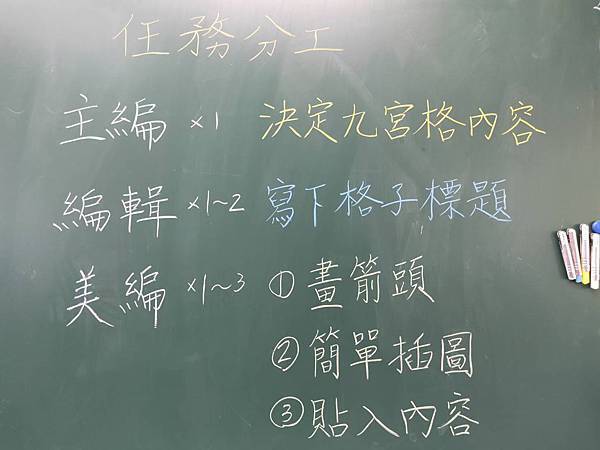 任務分工
主編 ×1 決定九宮格內容
編輯 ×1~2 寫下格子標題
美編 ×1~3 ①畫箭頭
②簡單插圖
③貼入內容